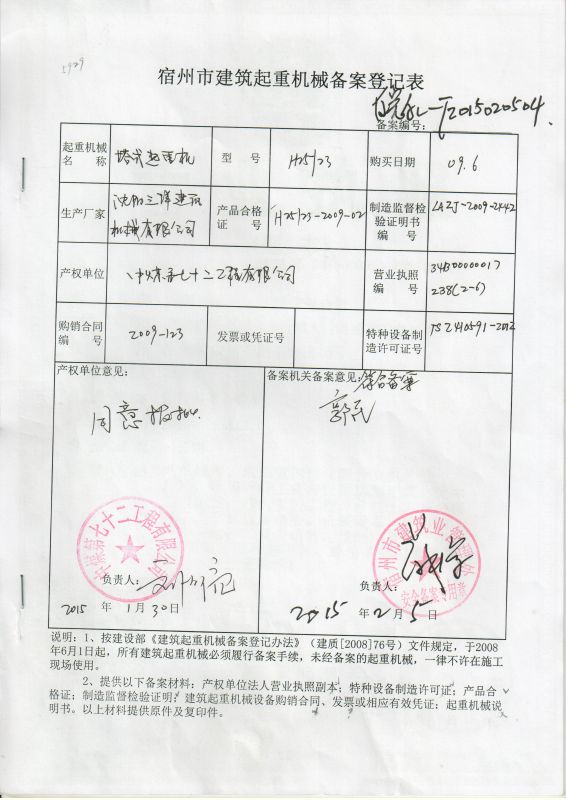 5929
宿州市建筑起重机械备案登记表
备案编号：皖KL-T2015020504
起重机械名称 塔式起重机 型号 H25/23 购买日期 09.6
生产厂家 沈阳三洋建筑机械有限公司 产品合格证号 H25/23-2009-02 制造监督检验证明书编号
产权单位 中煤第七十二工程有限公司 营业执照编号 340000000017238(2-6)
购销合同编号 2009-123 发票或凭证号 特种设备制造许可证号 TS2410591-2012
产权单位意见：
同意报批
备案机关备案意见：符合备案
郭民
中煤第七十二工程有限公司
宿州市建筑业管理处
安全备案专用章
负责人：
2015 年 1月 30日
负责人：
2015 年 2月 5日
说明：1、按建设部《建筑起重机械备案登记办法》（建质[2008]76号）文件规定，于2008
年6月1日起，所有建筑起重机械必须履行备案手续，未经备案的起重机械，一律不许在施工
现场使用。
2、提供以下备案材料：产权单位法人营业执照副本；特种设备制造许可证；产品合
格证；制造监督检验证明；建筑起重机械设备购销合同、发票或相应有效凭证；起重机械说
明书。以上材料提供原件及复印件。